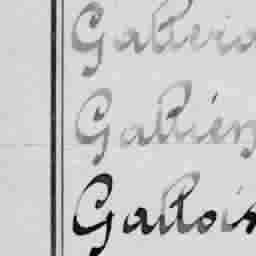 Gallera
Gallien
Gallois